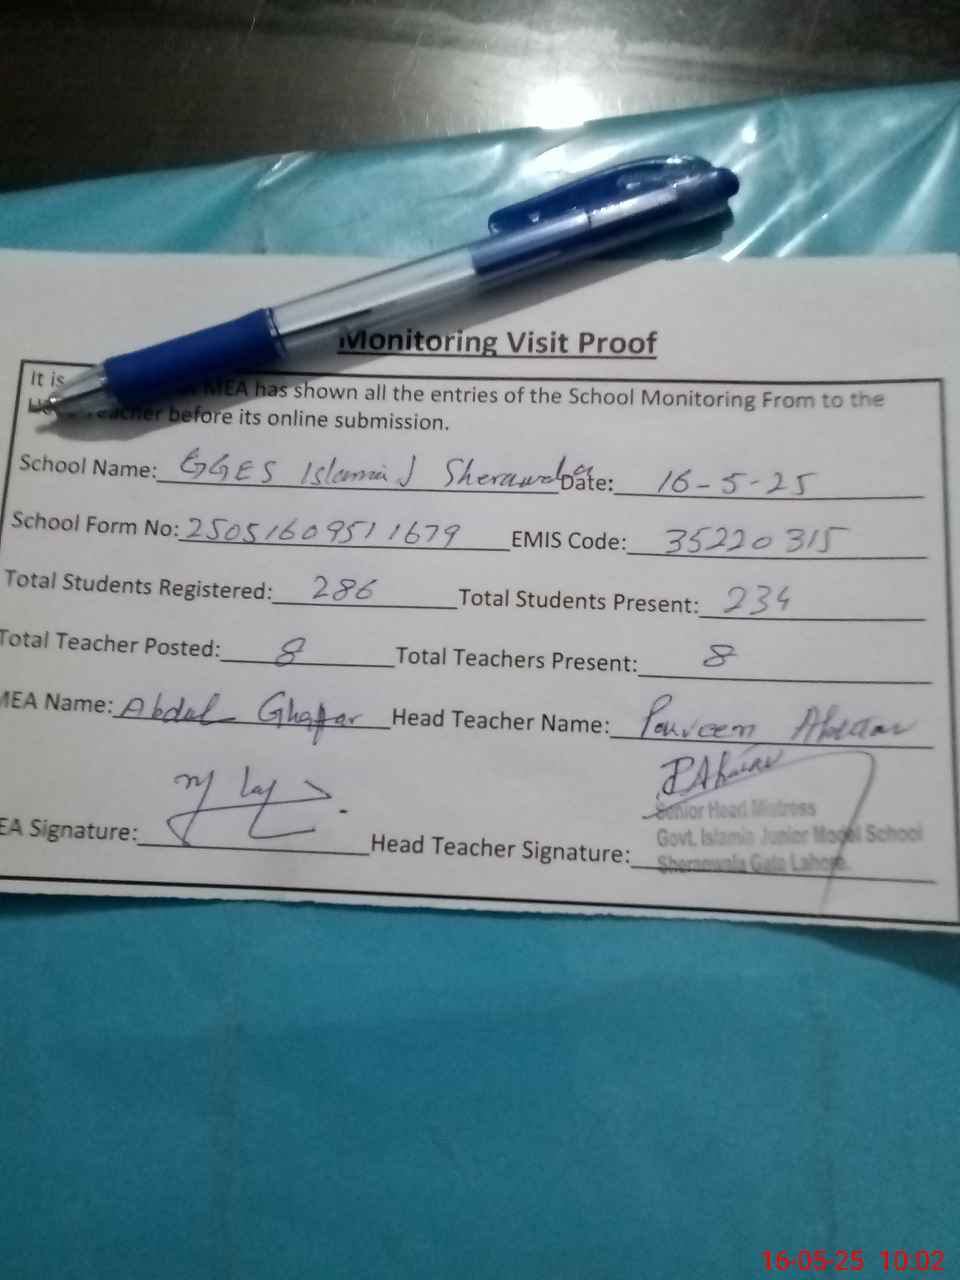 Monitoring Visit Proof
It is MEA has shown all the entries of the School Monitoring From to the
Teacher before its online submission.
School Name: GGES Islamia J Sheranwala Date: 16-5-25
School Form No: 25051609511679 EMIS Code: 35220315
Total Students Registered: 286 Total Students Present: 234
Total Teacher Posted: 8 Total Teachers Present: 8
MEA Name: Abdul Ghaffar Head Teacher Name: Parveen Akhtar
Senior Head Mistress
Govt. Islamia Junior Model School
EA Signature: Head Teacher Signature: Sheranwala Gate Lahore.
16-05-25 10:02